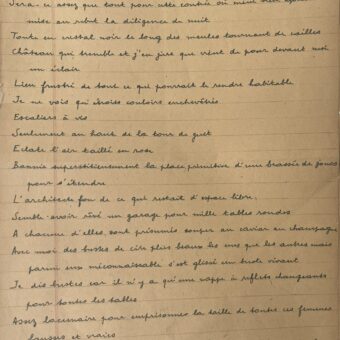 Sera-ce assez que tout pour cette contrée où même
mise au rebut la diligence de nuit
Toute en cristal noir le long des meules tournant de cailles
Château qui tremble et j'en jure que vient de poser devant moi
un éclair
Lieu frustré de tout ce qui pourrait le rendre habitable
Je ne vois qu'étroits couloirs enchevêtrés
Escaliers à vis
Seulement au haut de la tour de guet
Eclate l'air taillé en rose
Bannie superstitieusement la place primitive d'une brassée de joncs
pour s'étendre
L'architecte fou de ce qui restait d'espace libre
Semble avoir rêvé un garage pour mille tables rondes
A chacune d'elles sont présumés souper au caviar au champagne
Avec moi des bustes de cire plus beaux les uns que les autres mais
parmi eux méconnaissable s'est glissé un buste vivant
Je dis bustes car il n'y a qu'une nappe à reflets changeants
pour toutes les tables
Assez lacunaire pour emprisonner la taille de toutes ces femmes
fausses et vraies